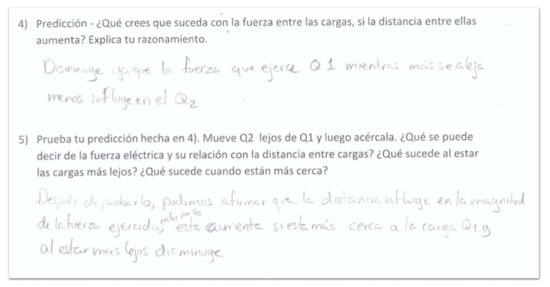 4) Predicción - ¿Qué crees que suceda con la fuerza entre las cargas, si la distancia entre ellas
aumenta? Explica tu razonamiento.
Disminuye ya que la fuerza que ejerce Q1 mientras más se aleja
menos influye en el Q2
5) Prueba tu predicción hecha en 4). Mueve Q2 lejos de Q1 y luego acércala. ¿Qué se puede
decir de la fuerza eléctrica y su relación con la distancia entre cargas? ¿Qué sucede al estar
las cargas más lejos? ¿Qué sucede cuando están más cerca?
Después de probarlo, podemos afirmar que la distancia influye en la magnitud
de la fuerza ejercida, esta aumenta si esta más cerca a la carga Q1 y
al estar mas lejos disminuye